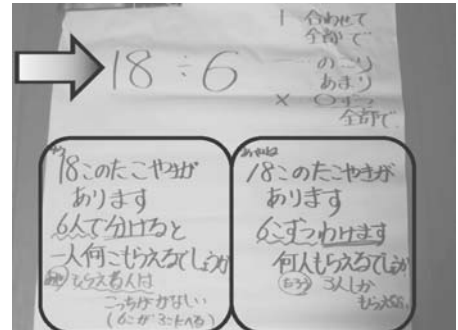 18÷6
合わせて
全部で
のこり
あまり
× ○ずつ
全部で
18このたこやきが
あります
6人で分けると
一人何こもらえるでしょうか
もらえる人は
こっちがかない
18このたこやきが
あります
6こずつわけます
何人もらえるでしょうか
3人しか
もらえない